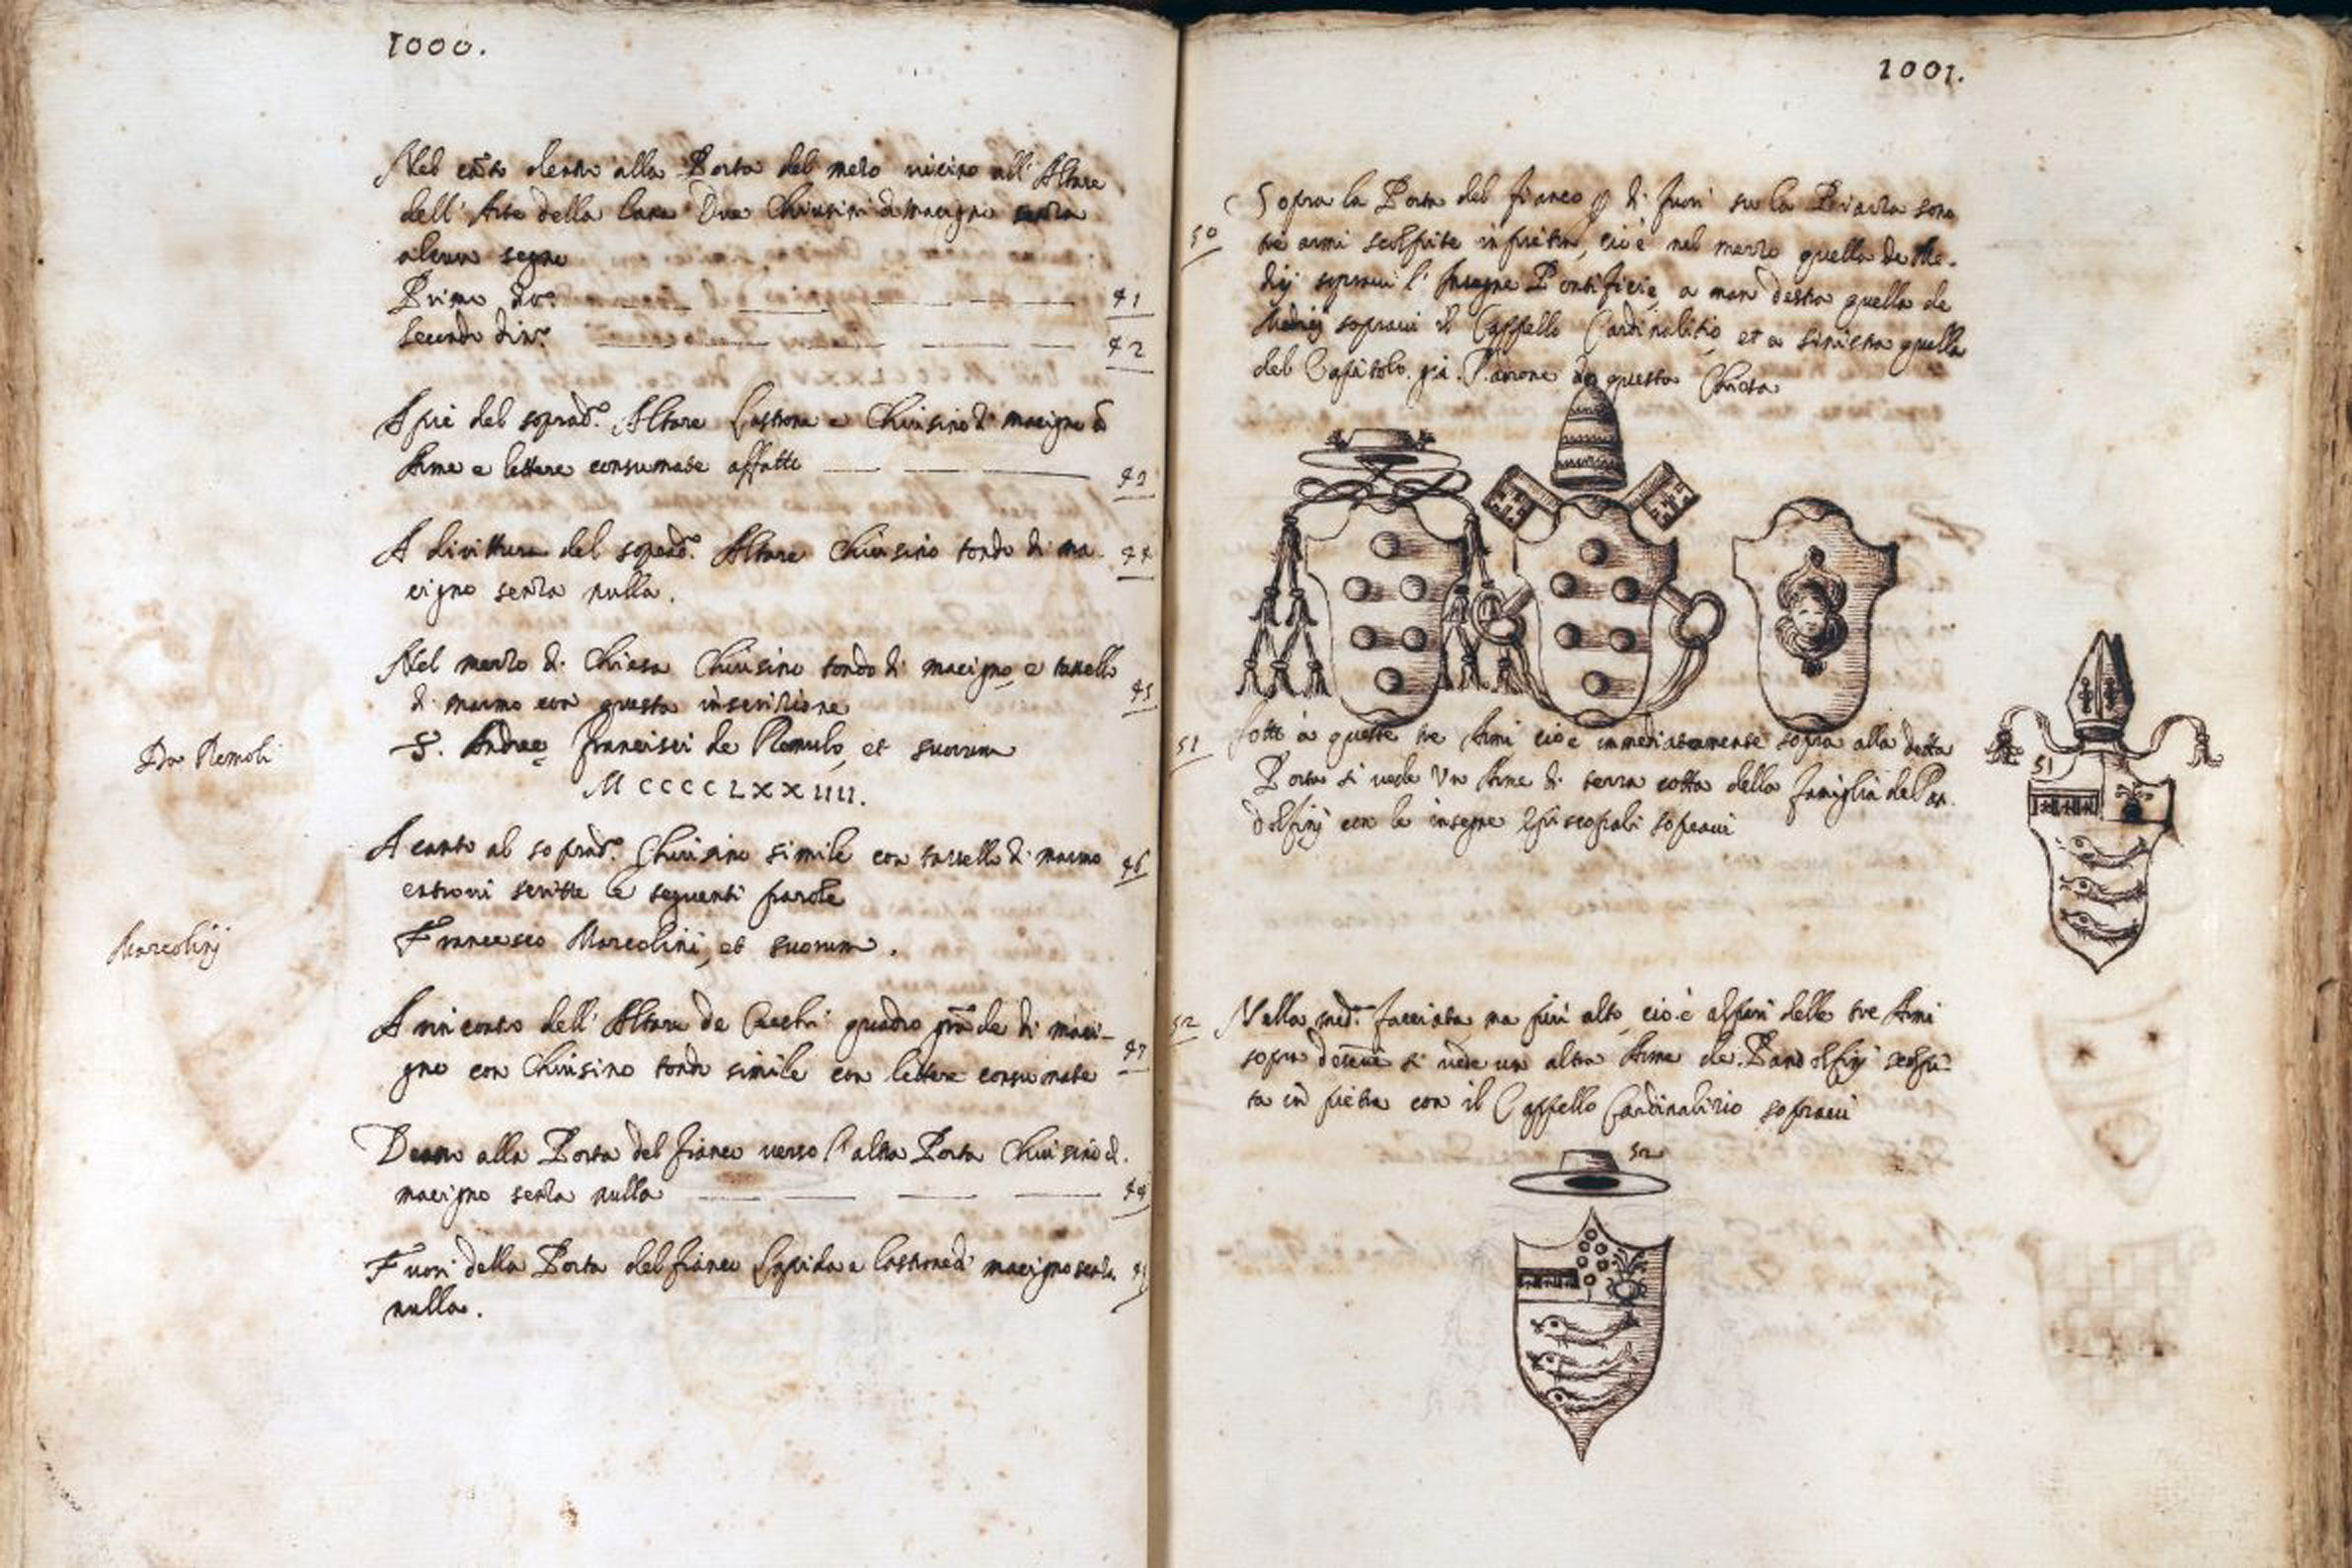 1000.
Nel canto dentro alla Porta del mezo vicino all' Altare
dell' Arte della Lana Due Chiusini di macigno senza
alcun segno
Primo do.
Secondo
41
42
A piè del soprad.º Altare Lastrone e Chiusino di macigno
Arme e lettere consumate affatto
43
A dirittura del soprad.º Altare Chiusino tondo di ma-
cigno senza nulla.
44
Nel mezzo di Chiesa Chiusino tondo di macigno e tassello
di marmo con questa inscrizione
45
Da Remoli
S. Andree Francisci de Romulo, et suorum
MCCCCLXXIIII.
A canto al soprad.º Chiusino simile con tassello di marmo
entrovi scritte le seguenti parole
46
Marcolinj
Francesco Marcolini, et suorum.
A rincontro dell' Altare de quadro grãde di maci-
gno con Chiusino tondo simile con lettere consumate
47
Dentro alla Porta del fianco verso l'altra Porta Chiusino d.
macigno senza nulla
48
Fuori della Porta del fianco Lapida e Lastrone di macigno senza
nulla.
49
1001.
50
Sopra la Porta del fianco di fuori su la Piazza sono
tre armi scolpite in pietra, cioè nel mezzo quella de Me-
dicj sopravi l' Insegne Pontificie, a man destra quella de
Medicj sopravi il Cappello Cardinalitio, et a sinistra quella
del Capitolo già Padrone di questa Chiesa
51
Sotto a queste tre Armi cioè immediatamente sopra alla detta
Porta si vede Un Arme di terra cotta della famiglia de Pan-
dolfinj con le insegne Episcopali sopravi
51
52
Nella med.ª facciata ma più alto, cioè al pari delle tre Armi
sopra descritte si vede un altra Arme de Pandolfinj scolpi-
ta in pietra con il Cappello Cardinalizio sopravi
52